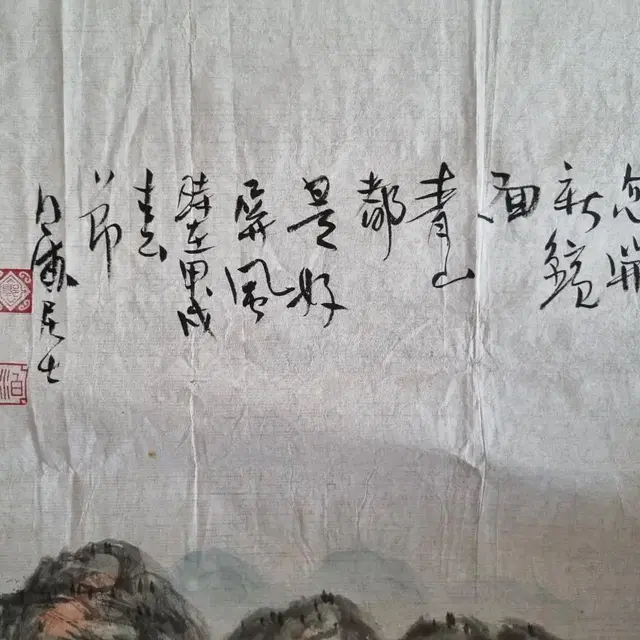 新鏡
面
青山
都
是好
屏風
時在甲戌
春
節
居士